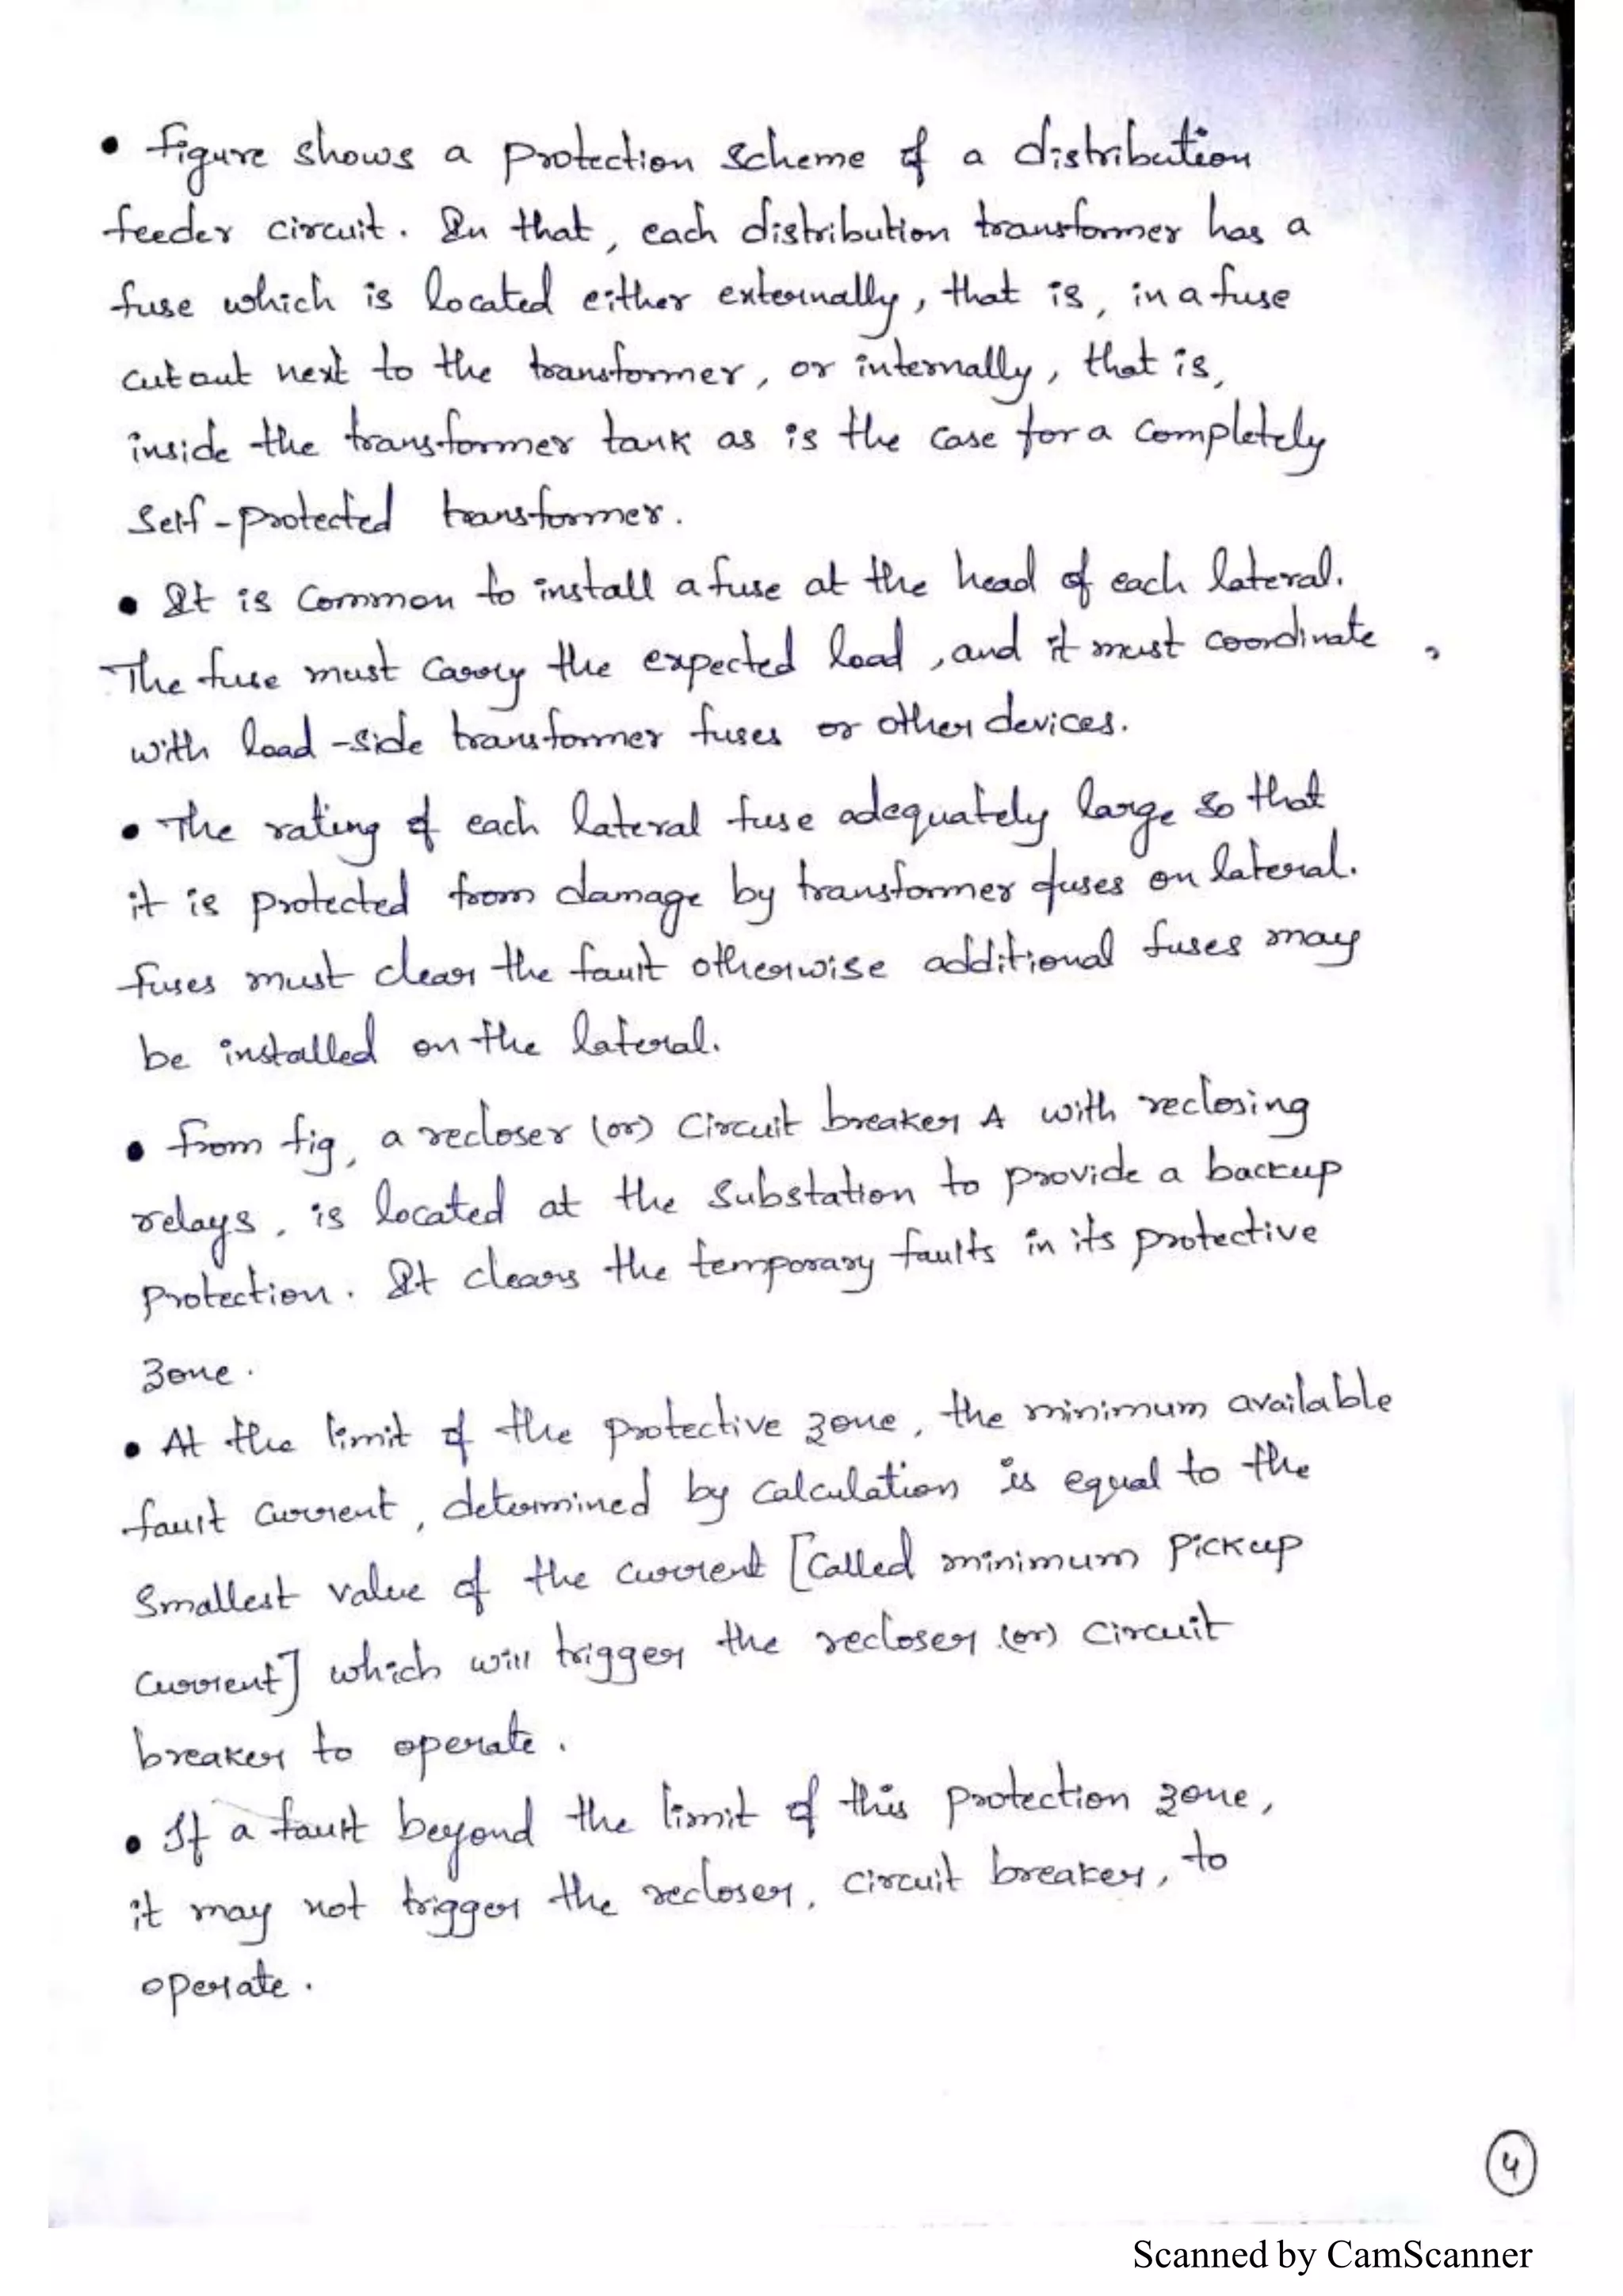 • Figure shows a protection scheme of a distribution
feeder circuit. In that, each distribution transformer has a
fuse which is located either externally, that is, in a fuse
cutout next to the transformer, or internally, that is,
inside the transformer tank as is the case for a completely
self-protected transformer.
• It is common to install a fuse at the head of each lateral.
The fuse must carry the expected load, and it must coordinate,
with load-side transformer fuses or other devices.
• The rating of each lateral fuse adequately large so that
it is protected from damage by transformer fuses on lateral.
fuses must clear the fault otherwise additional fuses may
be installed on the lateral.
• From fig, a recloser (or) circuit breaker A with reclosing
relays, is located at the substation to provide a backup
protection. It clears the temporary faults in its protective
zone.
• At the limit of the protective zone, the minimum available
fault current, determined by calculation is equal to the
smallest value of the current [called minimum pickup
current] which will trigger the recloser (or) circuit
breaker to operate.
• If a fault beyond the limit of this protection zone,
it may not trigger the recloser, circuit breaker, to
operate.
4
Scanned by CamScanner